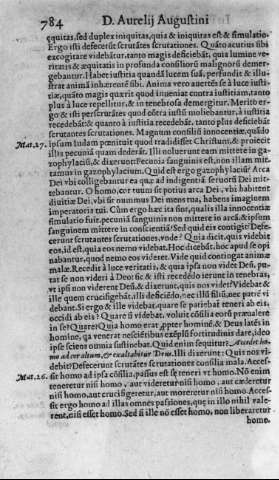 784 D. Aurelij Augustini
equitas, sed duplex iniquitas, quia & iniquitas est & simulatio.
Ergo isti defecerūt scrutātes scrutationes. Quāto acutius sibi
excogitare videbātur, tanto magis desciebāt, quia lumine ve-
ritatis & æquitatis in profunda consiliorū malignorū demer-
gebantur. Habet iustitia quandā lucem suā, perfundit & illu-
strat animā inhærentē sibi. Anima vero auertēs se à luce iusti-
tiæ, quāto magis quærit quod inueniat contra iustitiam, tanto
plus à luce repellitur, & in tenebrosa demergitur. Meritò er-
go & isti perscrutātes quod cōtra iustū moliebantur, à iustitia
recedebāt: & quanto à iustitia recedebāt, tanto plus deficiebāt
scrutantes scrutationes. Magnum consiliū innocentiæ, quādo
Mat.27. ipsum Iudam pœnituit quod tradidisset Christum, & proiecit
illis pecuniā quam dederāt. Illi noluerunt eam mittere in ga-
zophylaciū, & dixerunt: Pecunia sanguinis est, non illam mit-
tamus in gazophylacium. Quid est ergo gazophylaciū? Arca
Dei vbi colligebantur ea quæ ad indigentiā seruorū Dei mit-
tebantur. O homo, cor tuum sit potius arca Dei, vbi habitent
diuitiæ Dei, vbi sit nummus Dei mens tua, habens imaginem
imperatoris tui. Cùm ergo hæc ita sint, qualis illa innocentiæ
simulatio fuit, pecuniā sanguinis non mittere in arcā, & ipsum
sanguinem mittere in conscientiā? Sed quid eis contigit? Defe-
cerunt scrutantes scrutationes. vnde? Quia dicit, quis videbit
eos, id est, quia eos nemo videbat. Hoc dicebāt, hoc apud se pu-
tabant, quod nemo eos videret. Vide quid contingat animæ
malæ. Recedit à luce veritatis, & quia ipsa non videt Deū, pu-
tat se non videri à Deo: sic & isti recedēdo ierunt in tenebras,
vt ipsi non viderent Deū, & dixerunt, quis nos videt? Videbat &
ille quem crucifigebāt. illi desciēdo, nec illū filiū, nec patrē vi
debant. Si ergo & ille videbat, quare se patiebat teneri ab eis,
occidi ab eis? Quare si videbat, voluit cōsilia eorū præualere
in se? Quare? Quia homo erat, propter hominē, & Deus latēs in
homine, qa venerat nescientibus exēplū fortitudinis dare, ideo
ipse sciens omnia sustinebat. Quid enim sequitur. Accedet ho-
mo ad cor altum, & exaltabitur Deus. Illi dixerunt: Quis nos vi-
debit? Defecerunt scrutātes scrutationes cōsilia mala. Acces-
Mat.26. sit homo ad ipsa cōsilia, passus est se teneri vt homo. Nō enim
teneretur nisi homo, aut videretur nisi homo, aut cæderetur
nisi homo, aut crucifigeretur, aut moreretur nisi homo. Acces-
sit ergo homo ad illas omnes passiones, quæ in illo nihil vale-
rent, nisi esset homo. Sed si ille nō esset homo, non liberaretur
home.